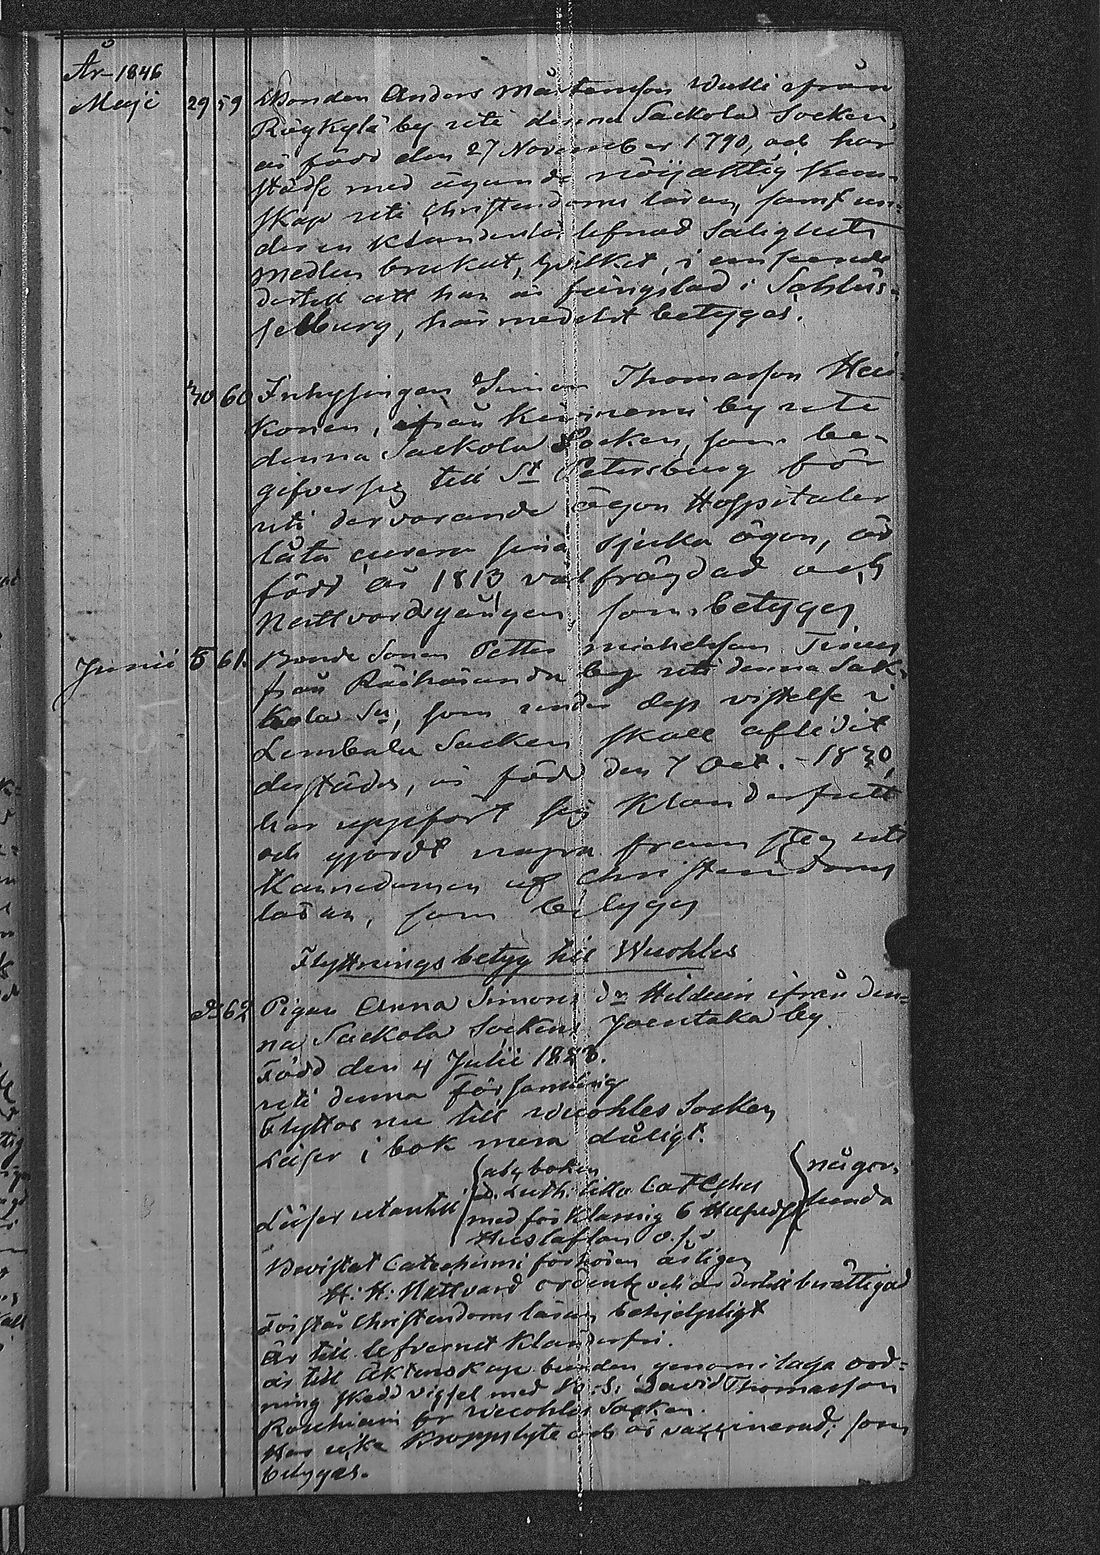 År 1846
Maji 29 59 Bonden Anders Mårtensson Wulli ifrån
Röykylä by uti denna Sackola Socken,
är född den 27 November 1790, och har
städse med ägande nöijaktig kun-
skap uti Christendoms läran, samt un-
der en klanderlös lefnad Salighets
medlen brukat, hvilket, i anseende
dertill att han är fängslad i Schlüs-
selburg, härmedelst betygas.
30 60 Inhysingen Simon Thomasson Hei-
konen, ifrån Kiiviniemi by uti
denna Sackola Socken, som be-
gifver sig till St Petersburg för
uti dervarande ögon Hospitaler
låta curera sina sjuka ögon, är
född år 1813, väl frägdad och
Nattvardsgången som betygas
Junii 5 61. Bonde Sonen Petter Michelsson
från by uti denna Sac-
kola Sn, som under dess vistelse i
Lembala Socken skall aflidit
derstädes, är född den 7 Oct. 1830,
har uppfört sig klanderfritt
och gjordt några framsteg uti
kännedomen af Christendoms
läran, som betygas
Flyttnings betyg till Wuohles
d:o 62 Pigan Anna Simons dr Hilduin ifrån den-
na Sackola Sockens Joentaka by.
Född den 4 Julii 1823.
uti denna församling
flyttar nu till Wuohles Socken
Läser i bok mera dåligt.
Läser utantill abs boken
D. Luth. lilla Catches
med förklaring 6 Hufvudst.
Hustaflan o. s. v.
någor-
lunda
Bevistat Catechismi förhören årligen
H. H. Nattvard ordentl. och är dertill berättigad
Förstår Christendoms läran behjelpligt
Är till lefvernet klanderfri.
är till äktenskap bunden genom i laga ord-
ning skedd vigsel med David Thomasson
fr Wuohles Socken.
Har icke kroppslyte och är vaccinerad; som
betygas.